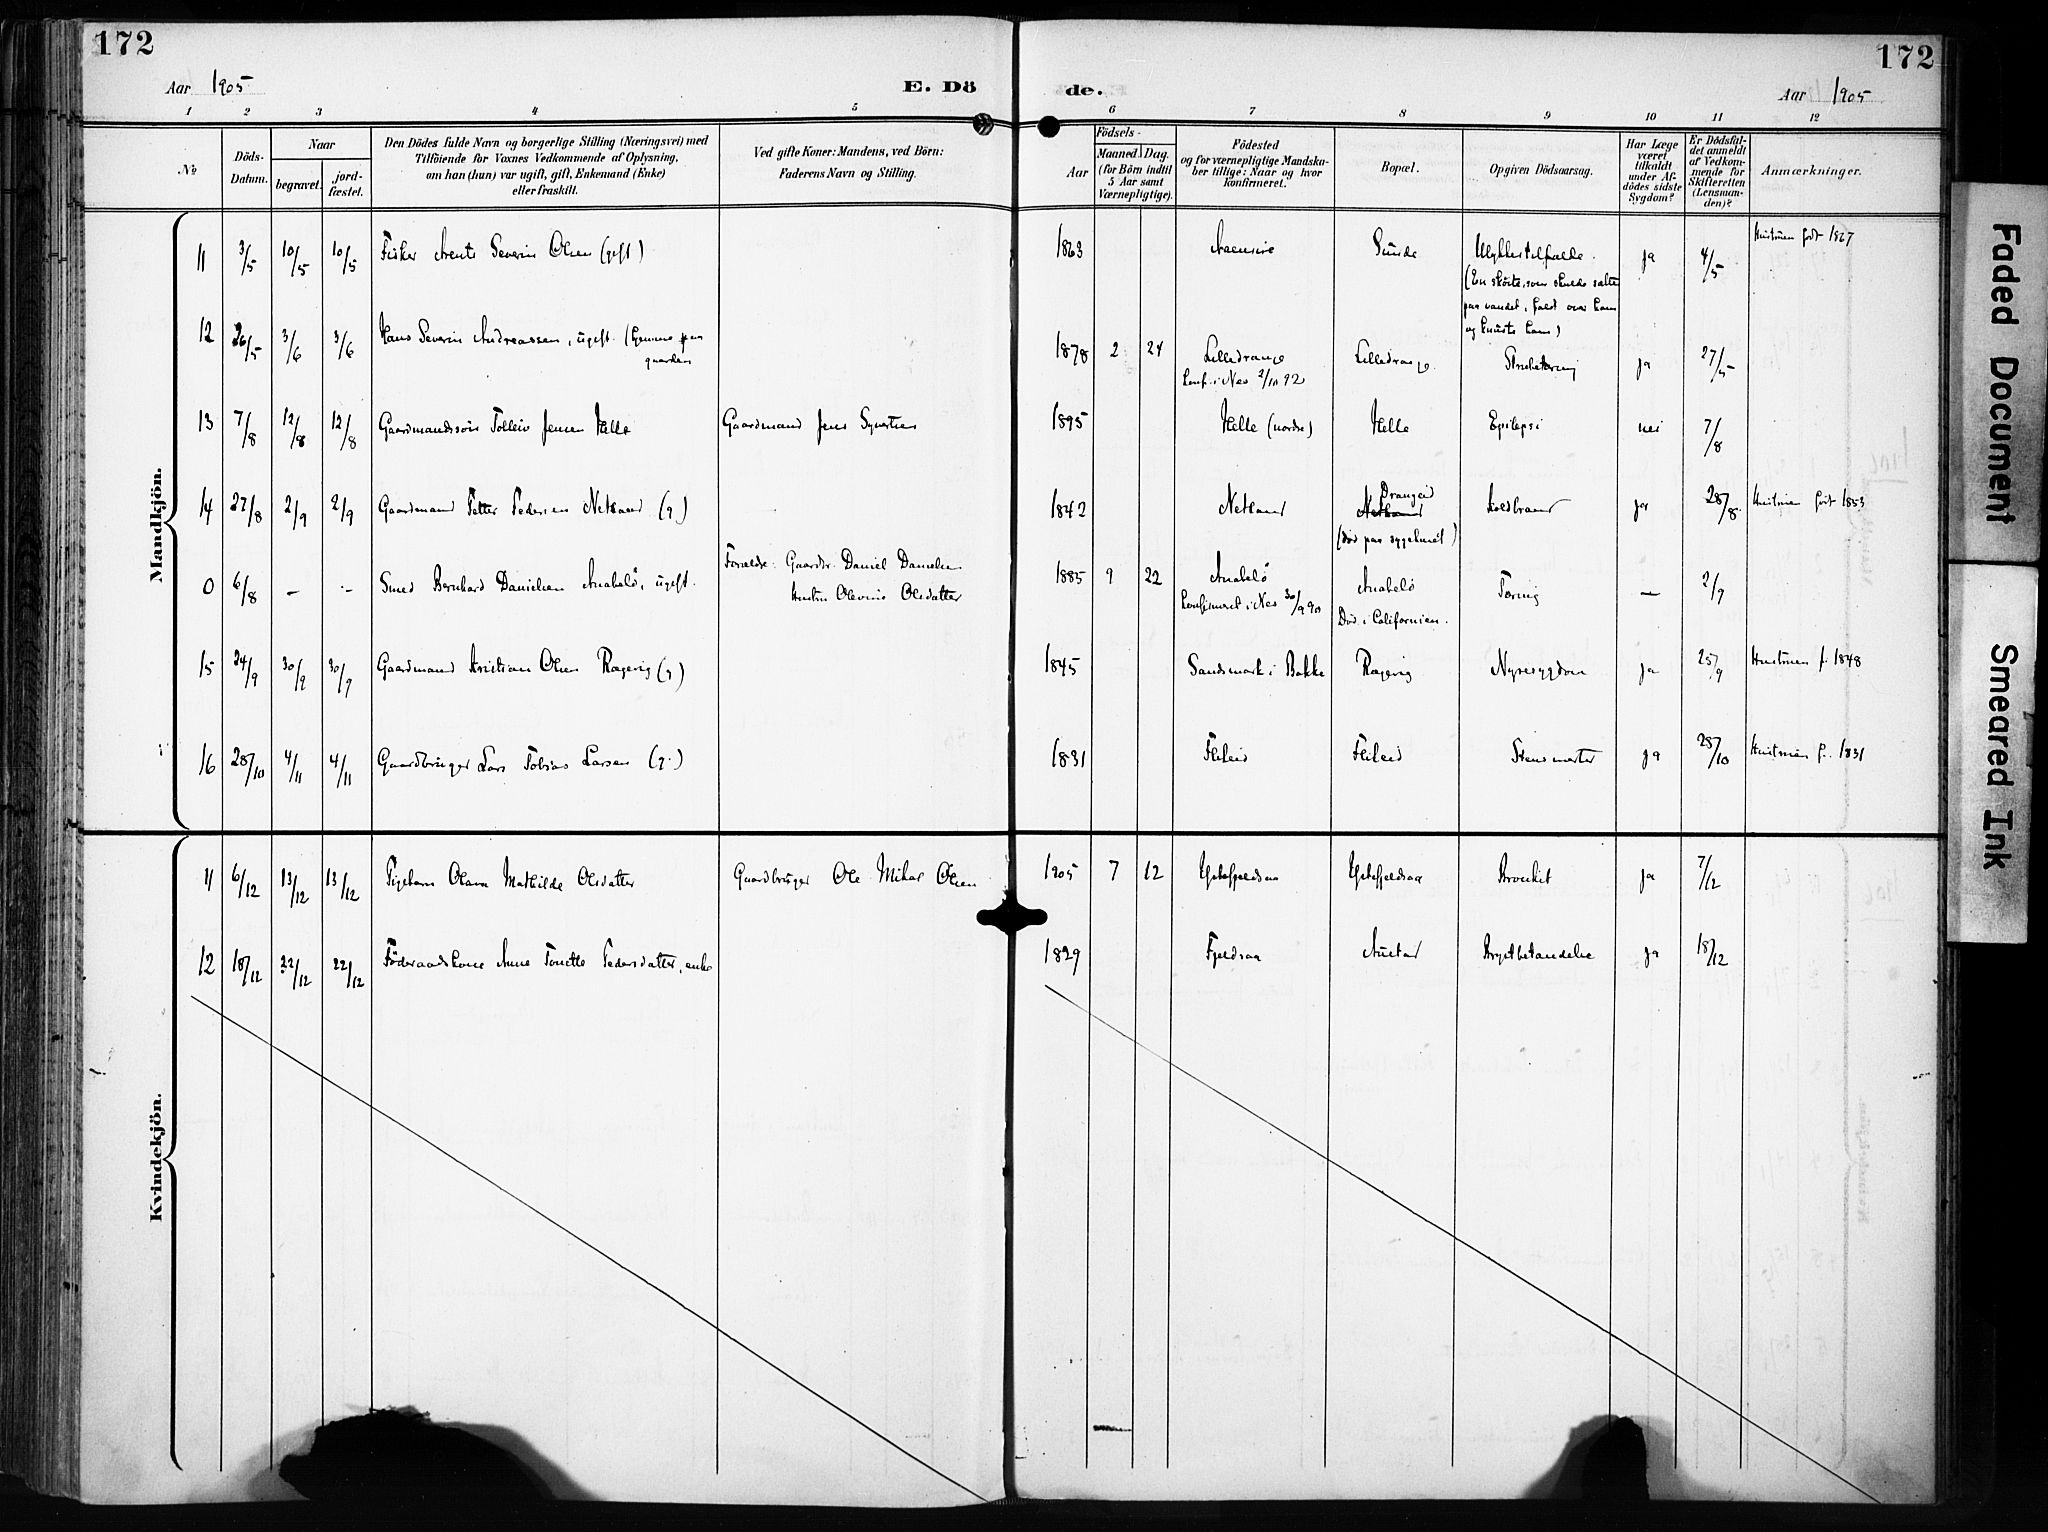 172
172
Aar 1905
E. Dö
de.
Aar 1905
1 2 3 4 5 6 7 8 9 10 11 12
No
Döds-
Datum.
Naar
begravet.
jord-
fæstet.
Den Dödes fulde Navn og borgerlige Stilling (Næringsvei) med
Tilföiende for Voxnes Vedkommende af Oplysning,
om han (hun) var ugift, gift, Enkemand (Enke)
eller fraskilt.
Ved gifte Koner: Mandens, ved Börn:
Faderens Navn og Stilling.
Födsels-
Aar
Maaned. Dag.
(for Börn indtil
5 Aar samt
Værnepligtige).
Födested
og for værnepligtige Mandska-
ber tillige: Naar og hvor
konfirmeret.
Bopæl.
Opgiven Dödsaarsag.
Har Læge
været
tilkaldt
under Af-
dödes sidste
Sygdom?
Er Dödsfal-
det anmeldt
af Vedkom-
mende for
Skifteretten
(Lensman-
den)?
Anmærkninger.
Mandkjön.
11 3/5 10/5 10/5 Fisker Arent Severin Olsen (gift) 1863 Sunde Ulykkestilfælde ja 4/5 Hustruen født 1867
(En skøite, som skulde sættes
paa vandet, faldt over ham
og knuste ham)
12 26/5 3/6 3/6 Hans Severin Andreassen, ugift. (hjemme paa
gaarden
1878 2 24 Lilledrange Lilledrange ja 27/5
konf. i Nes 2/10 92
13 7/8 12/8 12/8 Gaardmandssøn Tolleiv Jensen Helle Gaardmand Jens Syvertsen 1895 Helle (nordre) Helle Epilepsi nei 7/8
14 27/8 2/9 2/9 Gaardmand Petter Pedersen Netland (g.) 1842 Netland Netland Drangeid koldbrand ja 28/8 Hustruen født 1853
(død paa sygehuset)
0 6/8 - - Smed Bernhard Danielsen Anabelø, ugift. Forældre: Gaardbr. Daniel Danielsen
Hustru Olevine Olsdatter
1885 9 22 Anabelø Anabelø Tæring — 2/9
konfirmeret i Nes 30/9 90 Død i Californien.
15 24/9 30/9 30/9 Gaardmand Kristian Olsen Rægevig (g) 1845 Sandsmark i Bakke Rægevig Nyresygdom ja 25/9 Hustruen f. 1848
16 28/10 4/11 4/11 Gaardbruger Lars Tobias Larsen (g.) 1831 Flikeid Flikeid Stensmerter ja 28/10 Hustruen f. 1831
Kvindekjön.
11 6/12 13/12 13/12 Pigebarn Olava Mathilde Olsdatter Gaardbruger Ole Mikal Olsen 1905 7 12 Bronkit ja 7/12
12 18/12 22/12 22/12 Føderaadskone Anne Tonette Pedersdatter, enke 1829 Fjeldsaa Austad Brystbetændelse ja 18/12
Faded Document
Smeared Ink